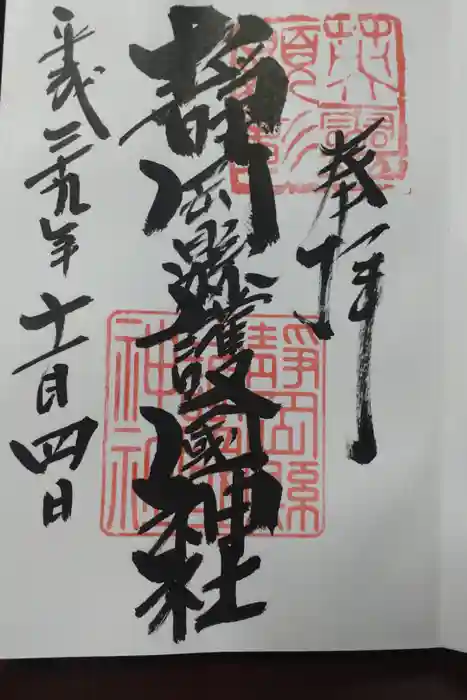 奉拝
静岡縣護國神社
平成二十九年十一月四日
靜岡縣
護國
神社